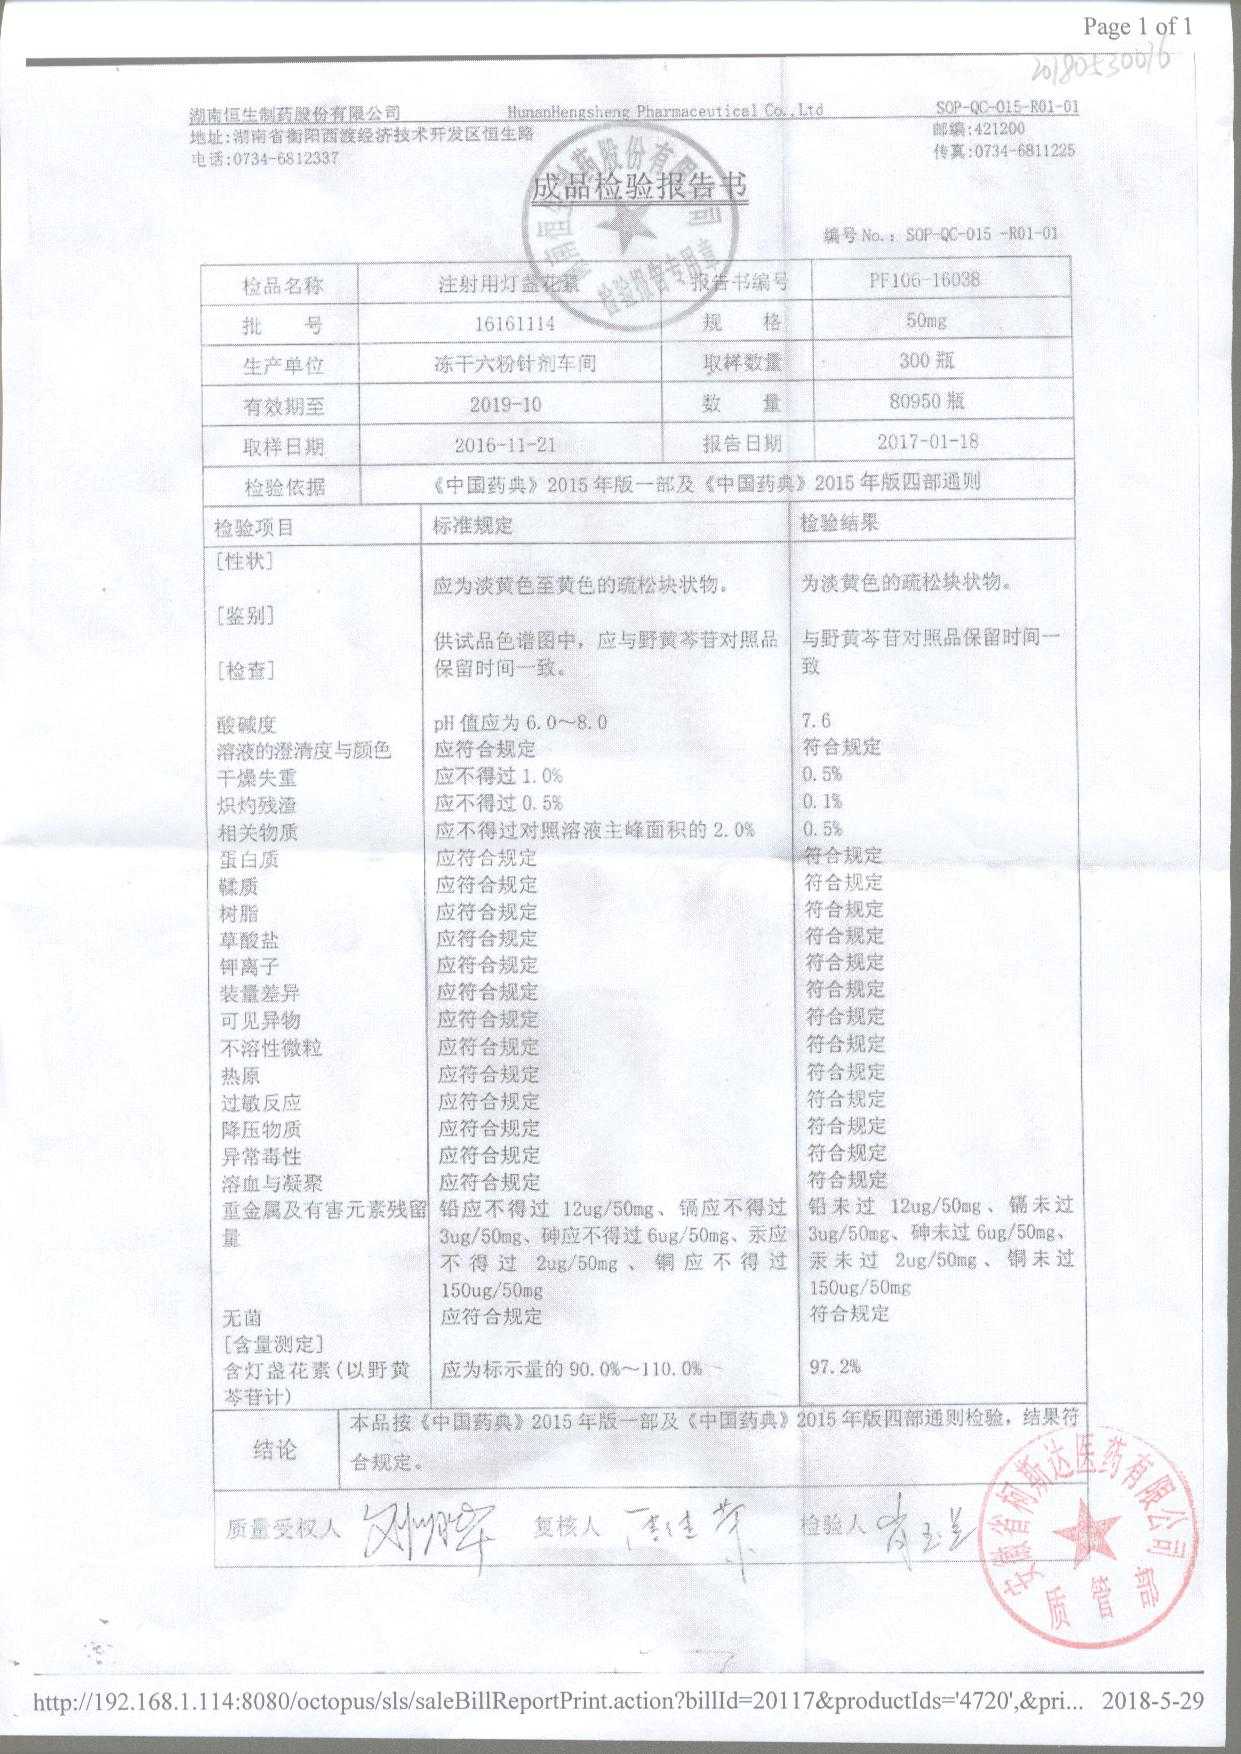 Page 1 of 1
20180530016
湖南恒生制药股份有限公司 HunanHengsheng Pharmaceutical Co.,Ltd SOP-QC-015-R01-01
地址:湖南省衡阳西渡经济技术开发区恒生路 邮编:421200
电话:0734-6812337 传真:0734-6811225
成品检验报告书
编号No.: SOP-QC-015 -R01-01
检品名称 注射用灯盏花素 报告书编号 PF106-16038
批 号 16161114 规 格 50mg
生产单位 冻干六粉针剂车间 取样数量 300 瓶
有效期至 2019-10 数 量 80950 瓶
取样日期 2016-11-21 报告日期 2017-01-18
检验依据 《中国药典》2015 年版一部及《中国药典》2015 年版四部通则
检验项目 标准规定 检验结果
[性状]
应为淡黄色至黄色的疏松块状物。 为淡黄色的疏松块状物。
[鉴别]
供试品色谱图中，应与野黄芩苷对照品 与野黄芩苷对照品保留时间一
保留时间一致。 致
[检查]
酸碱度 pH 值应为 6.0～8.0 7.6
溶液的澄清度与颜色 应符合规定 符合规定
干燥失重 应不得过 1.0% 0.5%
炽灼残渣 应不得过 0.5% 0.1%
相关物质 应不得过对照溶液主峰面积的 2.0% 0.5%
蛋白质 应符合规定 符合规定
鞣质 应符合规定 符合规定
树脂 应符合规定 符合规定
草酸盐 应符合规定 符合规定
钾离子 应符合规定 符合规定
装量差异 应符合规定 符合规定
可见异物 应符合规定 符合规定
不溶性微粒 应符合规定 符合规定
热原 应符合规定 符合规定
过敏反应 应符合规定 符合规定
降压物质 应符合规定 符合规定
异常毒性 应符合规定 符合规定
溶血与凝聚 应符合规定 符合规定
重金属及有害元素残留 铅应不得过 12ug/50mg、镉应不得过 铅未过 12ug/50mg、镉未过
量 3ug/50mg、砷应不得过 6ug/50mg、汞应 3ug/50mg、砷未过 6ug/50mg、
不得过 2ug/50mg、铜应不得过 汞未过 2ug/50mg、铜未过
150ug/50mg 150ug/50mg
无菌 应符合规定 符合规定
[含量测定]
含灯盏花素(以野黄 应为标示量的 90.0%～110.0% 97.2%
芩苷计)
结论 本品按《中国药典》2015 年版一部及《中国药典》2015 年版四部通则检验，结果符
合规定。
质量受权人 复核人 检验人
检验报告专用章
安徽省阿斯达医药有限公司
质管部
http://192.168.1.114:8080/octopus/sls/saleBillReportPrint.action?billId=20117&productIds='4720',&pri... 2018-5-29